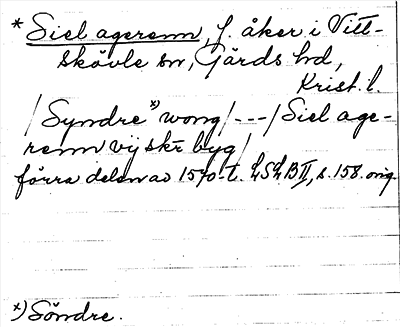 * Siel agerenn, f. åker i Vitt-
skövle sn, Gärds hd,
Krist. l.
/Syndre *) wong/---/Siel age-
renn vij skr byg/
förra delen av 1570-t. LSLB II, s. 158. orig.
*) Söndre.